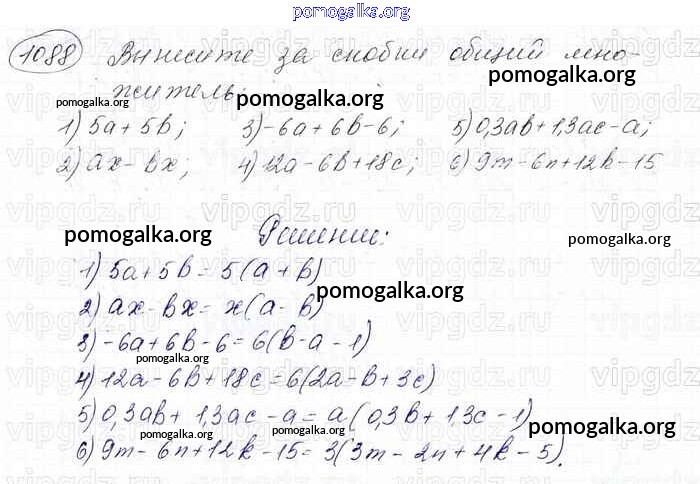 pomogalka.org
1088 Вынесите за скобки общий мно-
pomogalka.org
житель:
pomogalka.org pomogalka.org
1) 5a + 5b; 3) -6a + 6b - 6; 5) 0,3ab + 1,3ac - a;
pomogalka.org
2) ax - bx; 4) 12a - 6b + 18c; 6) 9m - 6n + 12k - 15
vipgdz.ru
pomogalka.org Решение: pomogalka.org
1) 5a + 5b = 5(a + b)
pomogalka.org
2) ax - bx = x(a - b)
3) -6a + 6b - 6 = 6(b - a - 1)
pomogalka.org
4) 12a - 6b + 18c = 6(2a - b + 3c)
5) 0,3ab + 1,3ac - a = a(0,3b + 1,3c - 1)
pomogalka.org pomogalka.org pomogalka.org
6) 9m - 6n + 12k - 15 = 3(3m - 2n + 4k - 5).